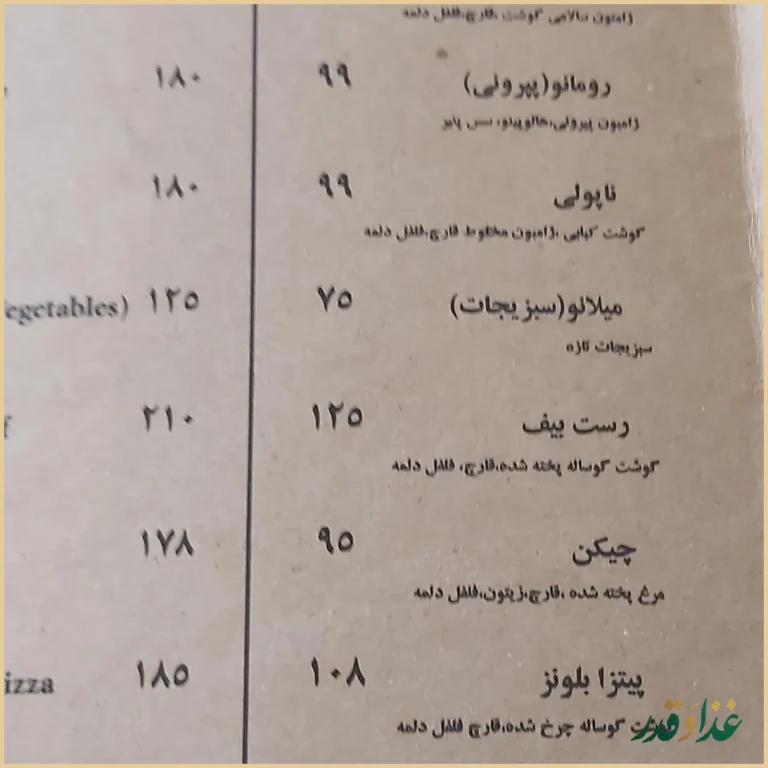 ژامبون سالامی گوشت ،قارچ،فلفل دلمه
رومانو(پپرونی) ۹۹ ۱۸۰
ژامبون پپرونی،هالوپینو، سس پایر
ناپولی ۹۹ ۱۸۰
گوشت کبابی ،ژامبون مخلوط قارچ،فلفل دلمه
میلانو(سبزیجات) ۷۵ ۱۲۵ egetables)
سبزیجات تازه
رست بیف ۱۲۵ ۲۱۰ f
گوشت گوساله پخته شده،قارچ، فلفل دلمه
چیکن ۹۵ ۱۷۸
مرغ پخته شده ،قارچ،زیتون،فلفل دلمه
پیتزا بلونز ۱۰۸ ۱۸۵ izza
گوشت گوساله چرخ شده،قارچ فلفل دلمه
غذا و قدر